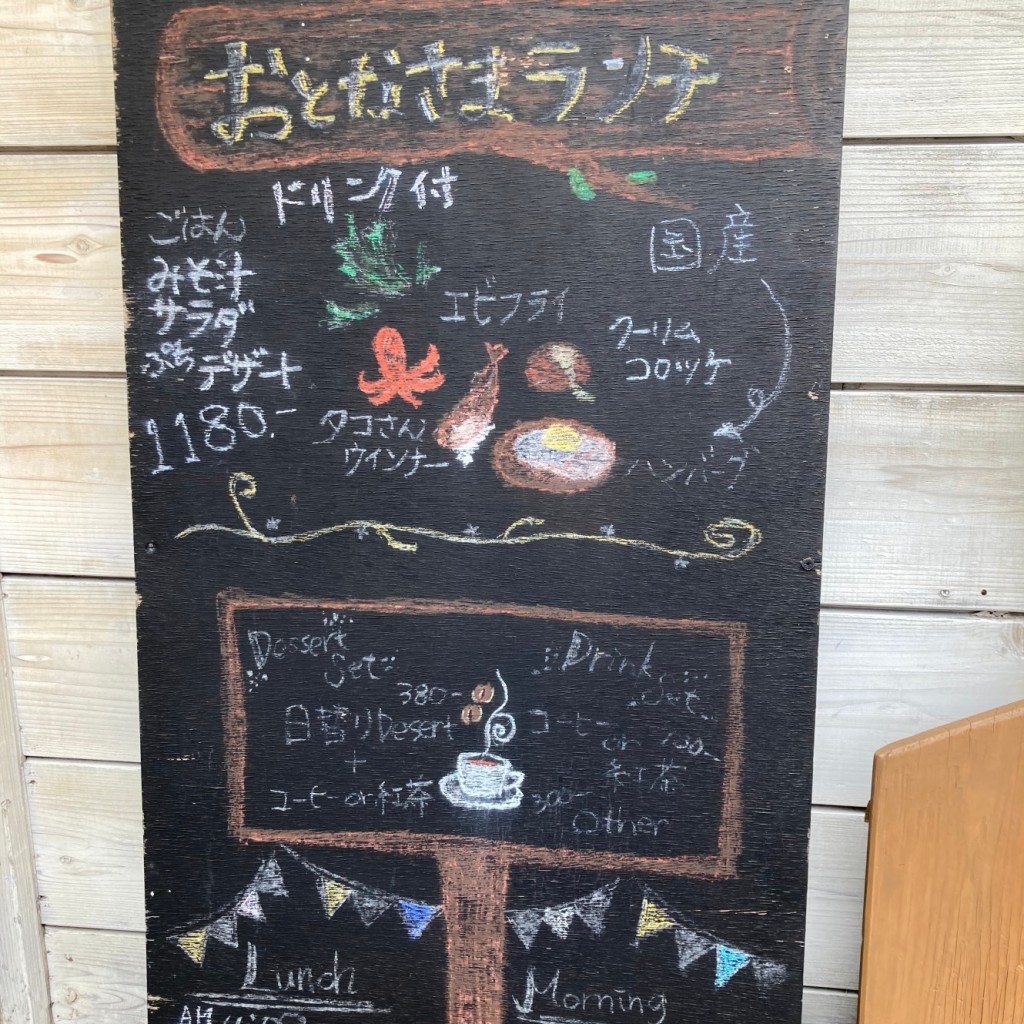 おとなさまランチ
ドリンク付
ごはん
みそ汁
サラダ
ぷちデザート
1180.-
国産
エビフライ
クリーム
コロッケ
タコさん
ウインナー
ハンバーグ
Dessert
Set
380-
日替りDesert
+
コーヒーor紅茶
Drink
Set
コーヒー
or
紅茶
300-
Other
Lunch
AM
Morning